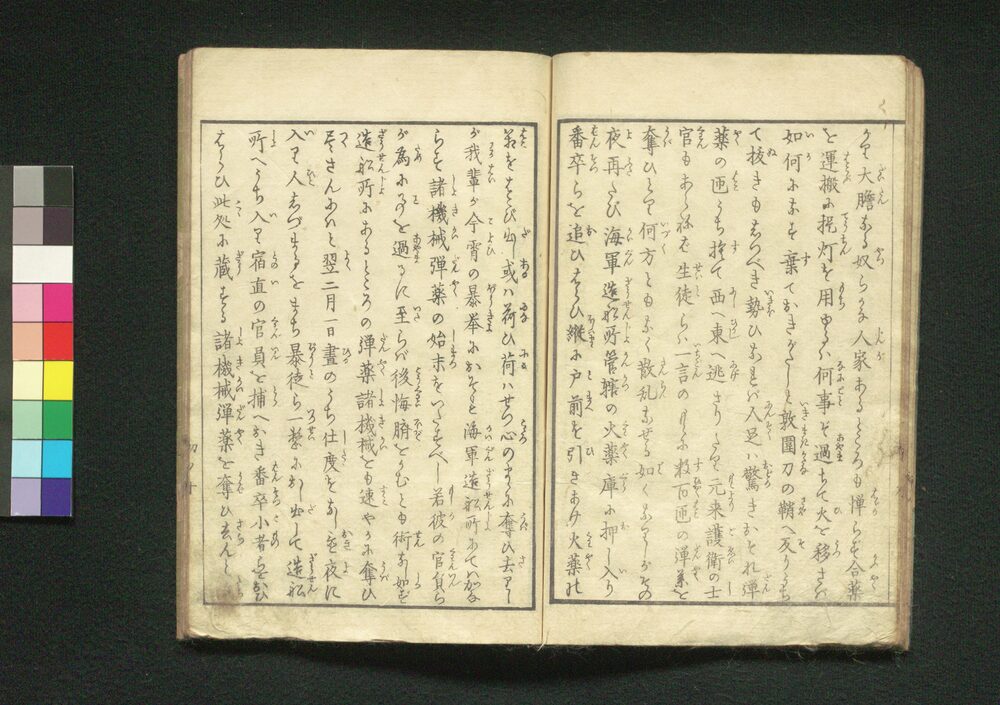 る大膽なる奴らかな人家あるところも憚らず合薬
を運搬に挑灯を用ゆるハ何事ぞ過ちて火を移さバ
如何になすを棄ておきがたしと敦圉刀の鞘へ反りうち
て抜きもはなつべき勢ひなれバ人足ハ驚きおそれ弾
薬の函うち捨て西へ東へ逃さりたり元来護衛の士
官もあらねバ生徒らハ一言の下に数百函の弾薬を
奪ひとりて何方ともなく散乱なせる如くなりしがその
夜再たび海軍造船所管轄の火薬庫に押し入り
番卒らを追ひはらひ縦に戸前を引きあけ火薬の
函をはこび出し或ハ荷ひ荷ハせつ心のまゝに奪ひ去りし
が我輩が今宵の暴挙におそれ海軍造船所にてハかな
らず諸機械弾薬の始末をいたすべし若彼の官員ら
が為に事を過るに至らバ後悔臍をかむとも術なし如ず
造船所にあるところの弾薬諸機械とも速やかに奪ひ
尽さんにハと翌二月一日晝のうち仕度をなし其夜に
入り人しづまるをまち暴徒ら一整におし出して造船
所へうち入り宿直の官員を捕へおき番卒小者らを追
はらひ此処に蔵する諸機械弾薬を奪ひ去んと